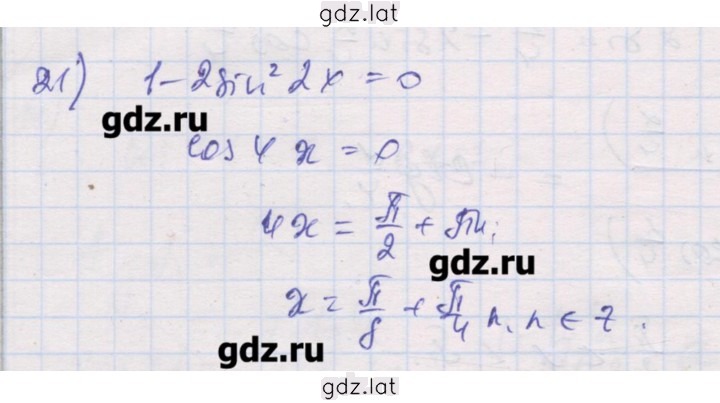 gdz.lat
21) 1 - 2sin² 2x = 0
gdz.ru
cos 4x = 0
4x = π/2 + πn;
gdz.ru
x = π/8 + π/4 n, n ∈ Z.
gdz.ru
gdz.lat